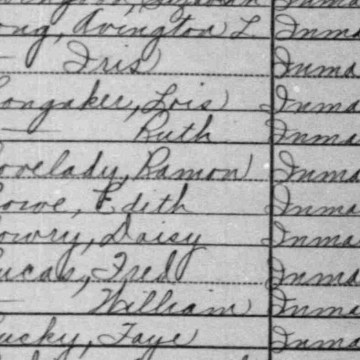 ong, Avington L Inma
— Iris Inma
ongaker, Lois Inma
— Ruth Inma
ovelady, Ramon Inma
owe, Edith Inma
owry, Daisy Inma
ucas, Fred Inma
— William Inma
ucky, Faye Inma